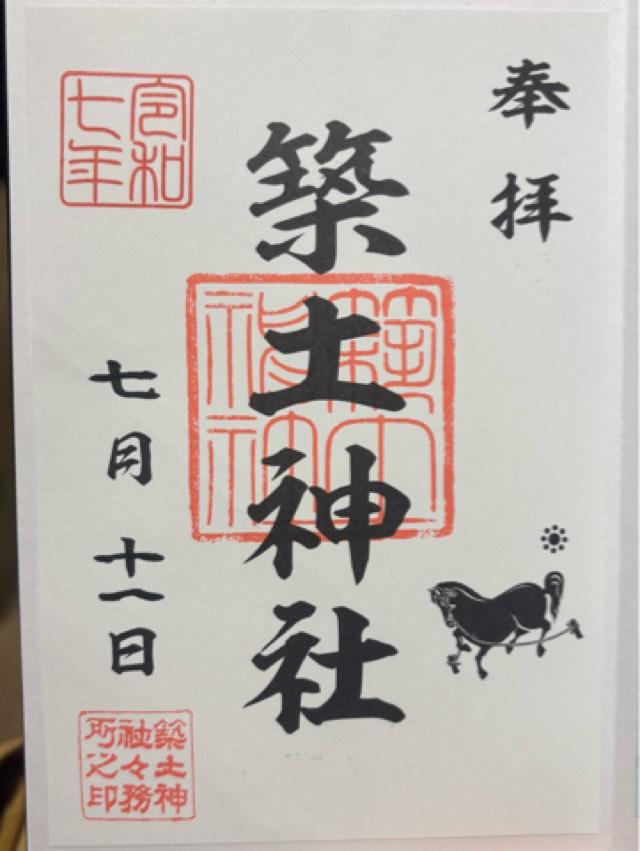 奉拝
築土神社
令和七年
七月十一日
築土神社
築土神社々務所之印